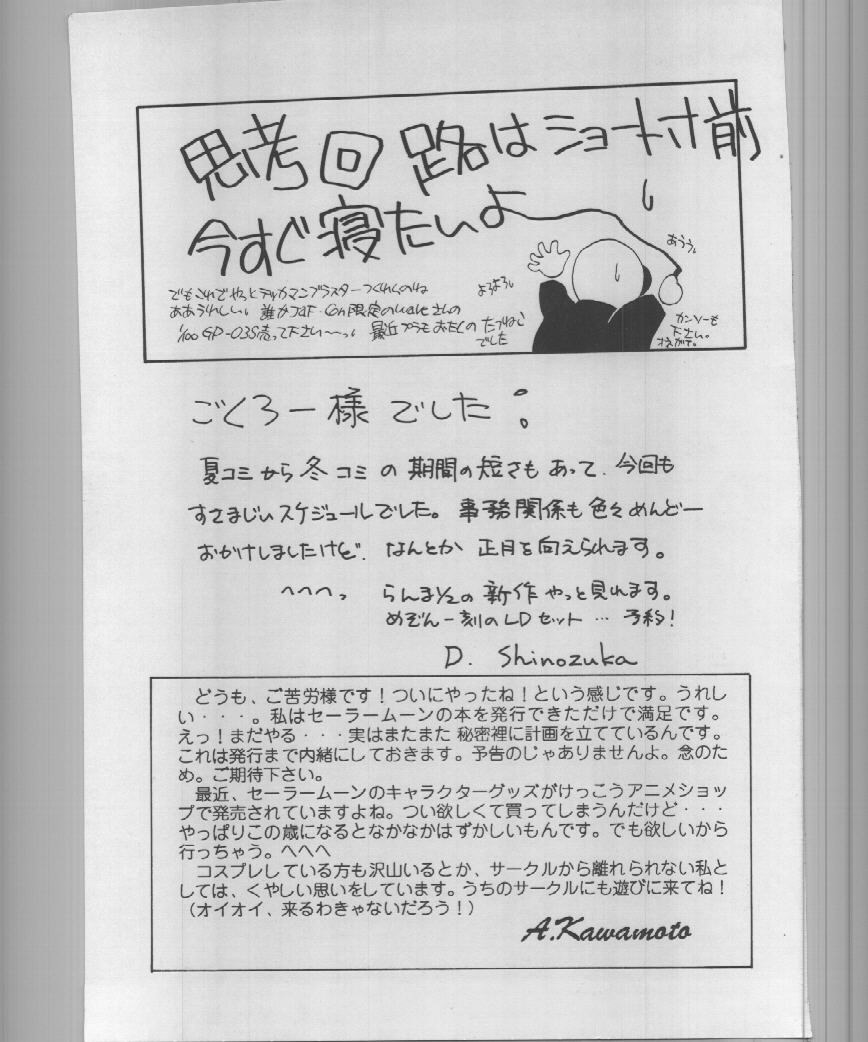 思考回路はショート寸前
今すぐ寝たいよ
あうう。
よろよろ。
でもこれでやっとテッカマンブラスターつくれるのね
ああうれしい。誰かJAF・CON限定のwaveさんの
1/100 GP-03S売って下さい〜っ。 最近プラモおたくの
でした
カンソーも
下さい。
ごくろー様でした。
夏コミから冬コミの期間の短さもあって、今回も
すさまじいスケジュールでした。事務関係も色々めんどー
おかけしましたけど、なんとか正月を向えられます。
へへへっ らんま1/2の新作やっと見れます。
めぞん一刻のLDセット…予約!
D. Shinozuka
どうも、ご苦労様です！ついにやったね！という感じです。うれし
い・・・。私はセーラームーンの本を発行できただけで満足です。
えっ！まだやる・・・実はまたまた 秘密裡に計画を立てているんです。
これは発行まで内緒にしておきます。予告のじゃありませんよ。念のた
め。ご期待下さい。
最近、セーラームーンのキャラクターグッズがけっこうアニメショッ
プで発売されていますよね。つい欲しくて買ってしまうんだけど・・・
やっぱりこの歳になるとなかなかはずかしいもんです。でも欲しいから
行っちゃう。へへへ
コスプレしている方も沢山いるとか、サークルから離れられない私と
しては、くやしい思いをしています。うちのサークルにも遊びに来てね！
（オイオイ、来るわきゃないだろう！）
A.Kawamoto